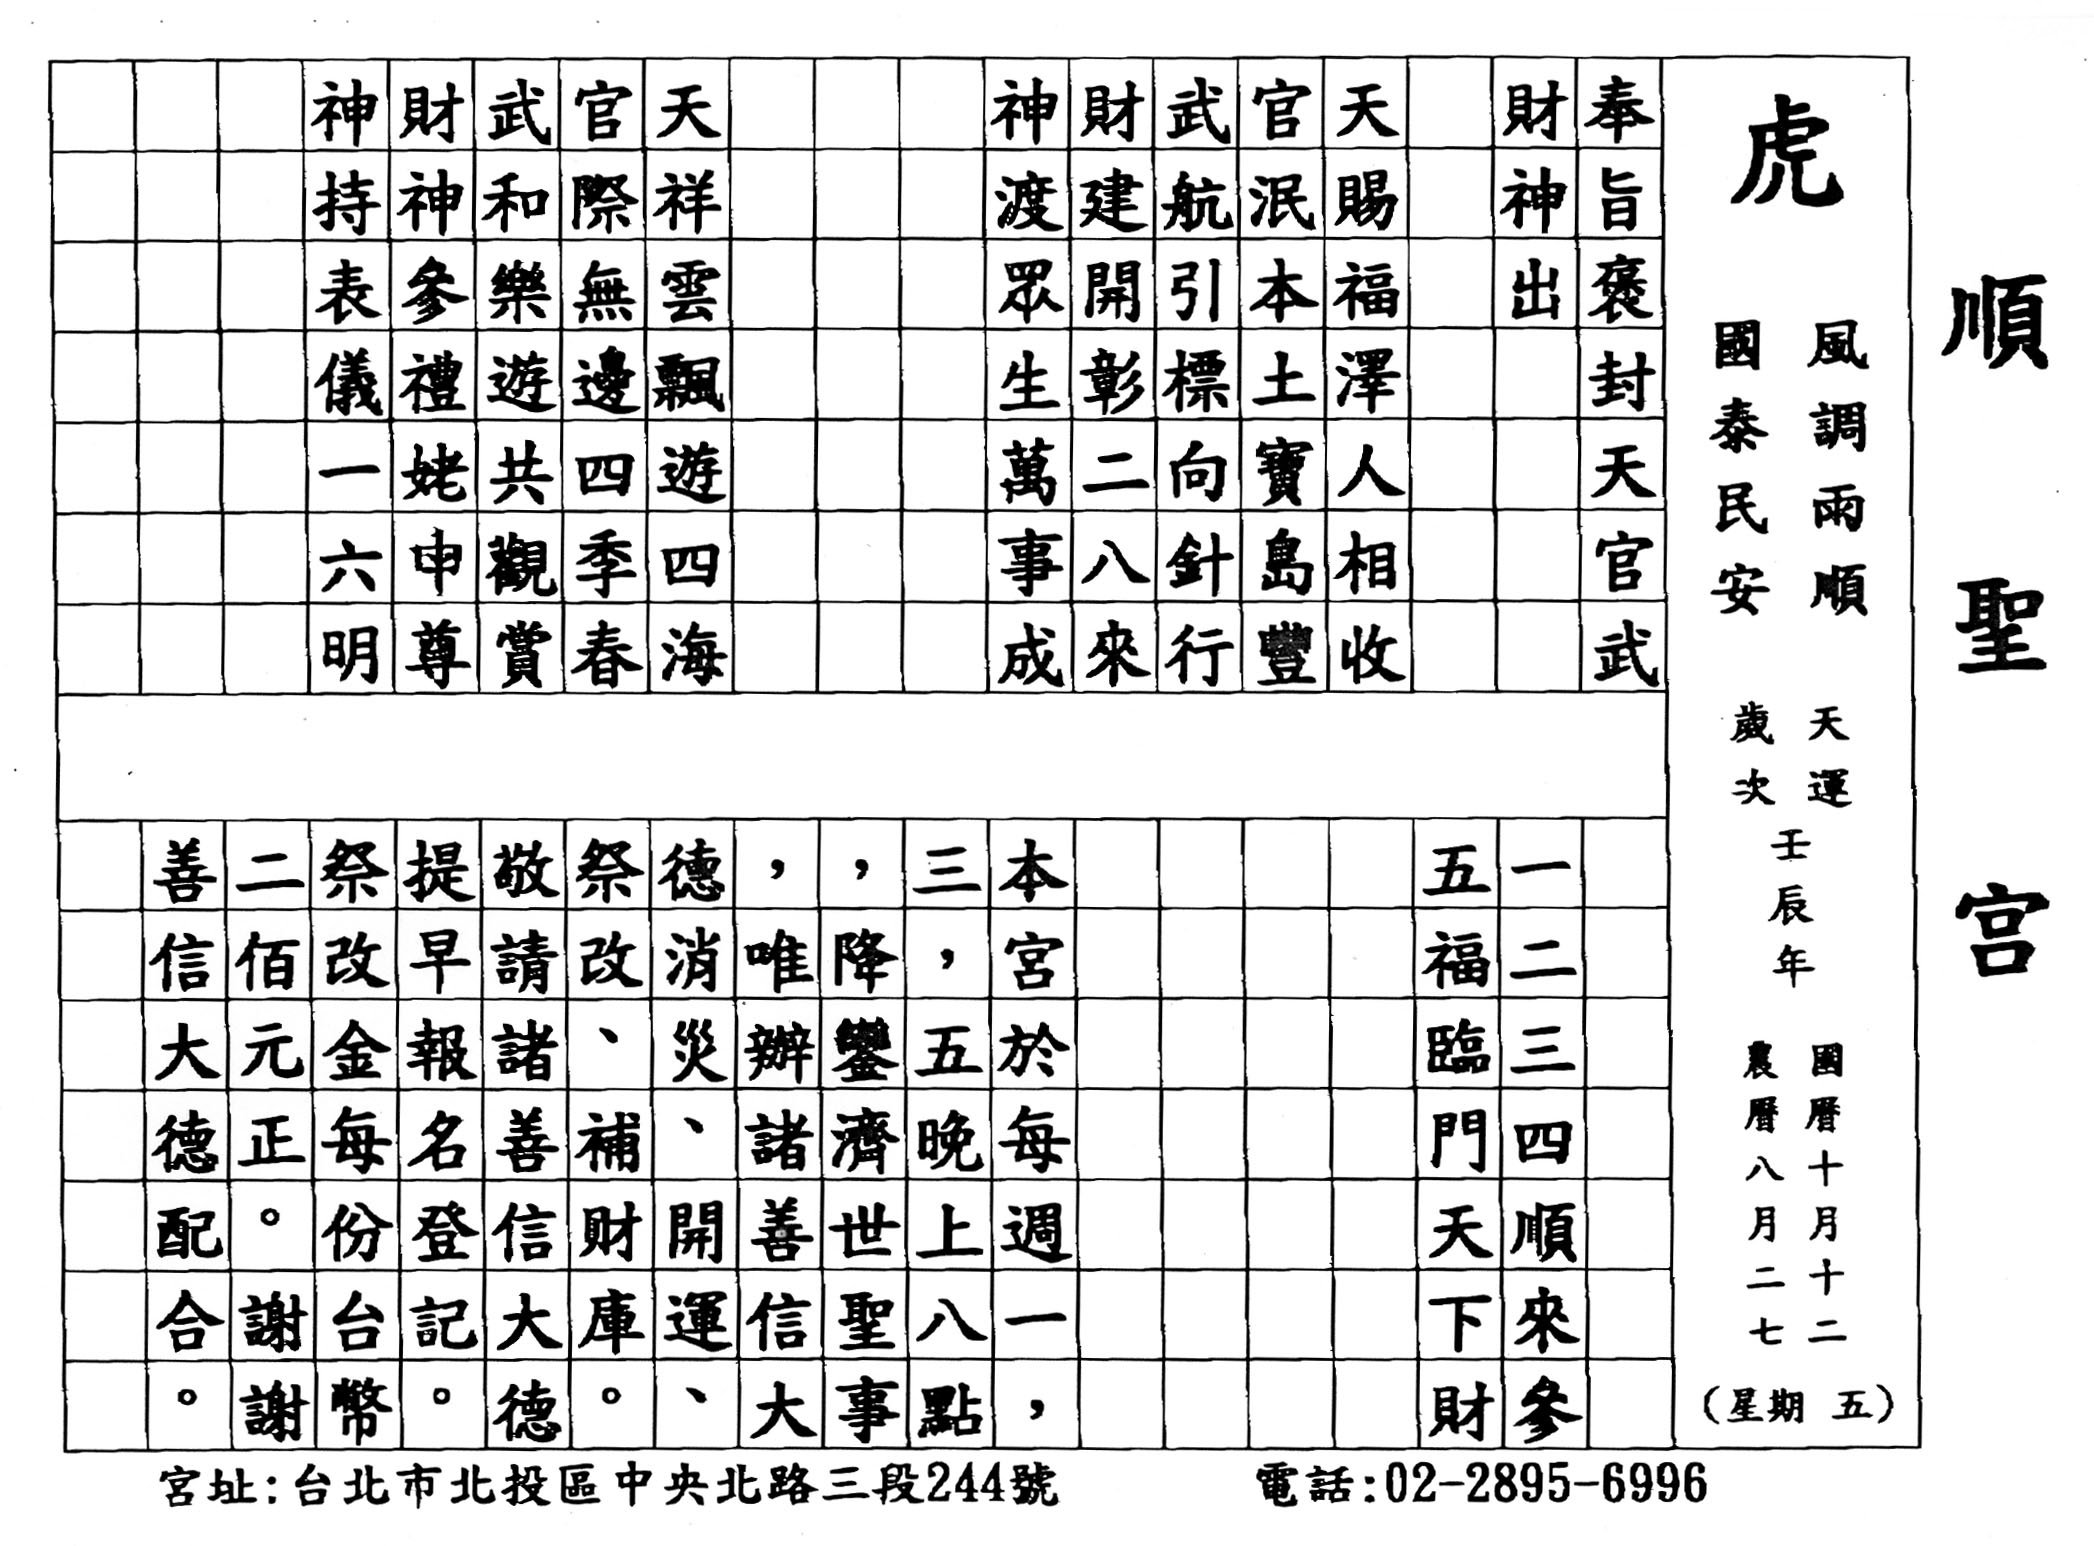 順聖宮
虎
風調雨順
國泰民安
天運
歲次
壬辰年
國曆十月十二
農曆八月二七
(星期 五)
奉旨褒封天官武
財神出
天賜福澤人相收
官泯本土寶島豐
武航引標向針行
財建開彰二八來
神渡眾生萬事成
天祥雲飄遊四海
官際無邊四季春
武和樂遊共觀賞
財神參禮姥申尊
神持表儀一六明
一二三四順來參
五福臨門天下財
本宮於每週一,
三,五晚上八點
,降鑾濟世聖事
,唯辦諸善信大
德消災、開運、
祭改、補財庫。
敬請諸善信大德
提早報名登記。
祭改金每份台幣
二佰元正。謝謝
善信大德配合。
宮址:台北市北投區中央北路三段244號
電話:02-2895-6996